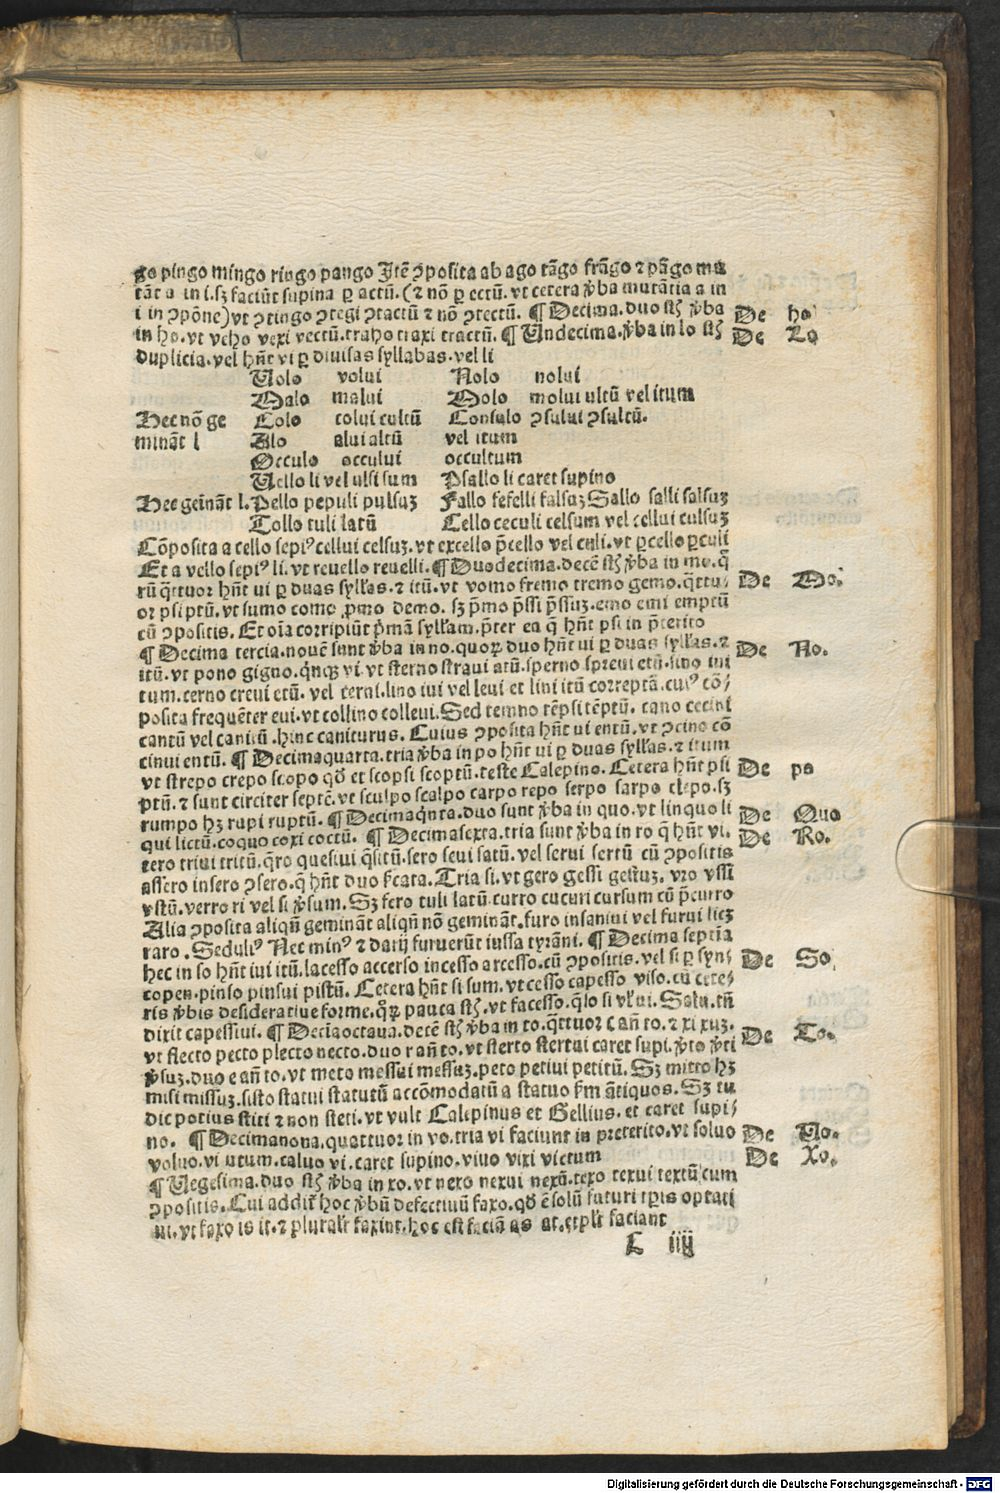 go pingo mingo ringo pango Itē ꝯposita ab ago tāgo frāgo ⁊ pāgo mu
tāt a in i. sꝫ faciūt supina ꝑ actū. (⁊ nō ꝑ ectū. vt cetera v̓ba mutātia a in
i in ꝯpōne) vt ꝯtingo ꝯtegi ꝯtactū ⁊ nō ꝯtectū. ¶ Decima. duo st̄ v̓ba De ho
in ho. vt veho vexi vectū. traho traxi tractū. ¶ Undecima. v̓ba in lo st̄ De Lo
duplicia. vel hn̄t vi ꝑ diuisas syllabas. vel li
Uolo volui Nolo nolui
Malo malui Molo molui ultū vel itum
Hec nō ge Colo colui cultū Consulo ꝯsului ꝯsultū.
mināt l Alo alui altū vel itum
Occulo occului occultum
Uello li vel ulsi sum Psallo li caret supino
Hec geīnāt l. Pello pepuli pulsuꝫ Fallo fefelli falsuꝫ Sallo salli salsuꝫ
Tollo tuli latū Cello ceculi celsum vel cellui culsuꝫ
Cōposita a cello sepiꝰ cellui celsuꝫ. vt excello p̄cello vel culi. vt ꝑcello ꝑculi
Et a vello sepiꝰ li. vt reuello reuelli. ¶ Duodecima. decē st̄ v̓ba in mo. q̄
rū q̄ttuor hn̄t ui ꝑ duas syllas. ⁊ itū. vt vomo fremo tremo gemo. q̄ttu⸗ De Mo.
or psi ptū. vt sumo como ꝓmo demo. sꝫ p̄mo p̄ssi p̄ssuꝫ. emo emi emptū
cū ꝯpositis. Et oīa corripiūt p̄mā syllam. p̄ter ea q̄ hn̄t psi in p̄terito
¶ Decima tercia. nouē sunt v̓ba in no. quoꝝ duo hn̄t ui ꝑ duas syllas. ⁊ De No.
itū. vt pono gigno. q̄nqꝫ vi. vt sterno straui atū. sperno spreui etū. sino iui
itum. cerno creui etū. vel cerni. lino iui vel leui et lini itū correptā. cuiꝰ cō⸗
posita frequēter eui. vt collino colleui. Sed temno tēpsi tēptū. cano cecini
cantū vel canitū. hinc caniturus. Cuius ꝯposita hn̄t ui entū. vt ꝯcino cō
cinui entū. ¶ Decimaquarta. tria v̓ba in po hn̄t ui ꝑ duas syllas. ⁊ itum
vt strepo crepo scopo qđ et scopsi scoptū. teste Calepino. Cetera hn̄t psi De po
ptū. ⁊ sunt circiter septē. vt sculpo scalpo carpo repo serpo sarpo clepo. sꝫ
rumpo hꝫ rupi ruptū. ¶ Decimaq̄nta. duo sunt v̓ba in quo. vt linquo li De Quo
qui lictū. coquo coxi coctū. ¶ Decimasexta. tria sunt v̓ba in ro q̄ hn̄t vi. De Ro.
tero triui tritū. q̄ro quesiui q̄sitū. sero seui satū. vel serui sertū cū ꝯpositis
assero insero ꝯsero. q̄ hn̄t duo ſcata. Tria si. vt gero gessi gestuꝫ. vro vssi
vstū. verro ri vel si v̓sum. Sꝫ fero tuli latū. curro cucuri cursum cū p̄curro
Alia ꝯposita aliqn̄ gemināt aliqn̄ nō gemināt. furo insaniui vel furui licꝫ
raro. Seduliꝰ Nec minꝰ ⁊ darij furuerūt iussa tyrāni. ¶ Decima septīa
hec in so hn̄t iui itū. lacesso accerso incesso arcesso. cū ꝯpositis. vel si ꝑ syn⸗ De So.
copen. pinso pinsui pistū. Cetera hn̄t si sum. vt cesso capesso viso. cū cete⸗
ris v̓bis desideratiue forme. q̄ꝝ pauca st̄. vt facesso. q̄so si vl̓ iui. Salu. tn̄
dixit capessiui. ¶ Decīaoctaua. decē st̄ v̓ba in to. q̄ttuor c añ to. ⁊ xi xuꝫ. De To.
vt flecto pecto plecto necto. duo r añ to. vt sterto stertui caret supi. v̓to v̓ti
v̓suꝫ. duo e añ to. vt meto messui messuꝫ. peto petiui petitū. Sꝫ mitto hꝫ
misi missuꝫ. sisto statui statutū accōmodatū a statuo ſm ātiquos. Sꝫ tu
dic potius stiti ⁊ non steti. vt vult Calepinus et Gellius. et caret supi⸗
no. ¶ Decimanona. quattuor in vo. tria vi faciunt in preterito. vt soluo De Uo.
voluo. vi utum. caluo vi. caret supino. viuo vixi victum De Xo.
¶ Uegesima. duo st̄ v̓ba in xo. vt nexo nexui nexū. texo texui textū cum
ꝯpositis. Cui addit̄ hoc v̓bū defectiuū faxo. qđ ē solū futuri tꝑis optati
ui. vt faxo is it. ⁊ pluralr̄ faxint. hoc est faciā as at. et plr̄ faciant
L iiij
Digitalisierung gefördert durch die Deutsche Forschungsgemeinschaft - DFG